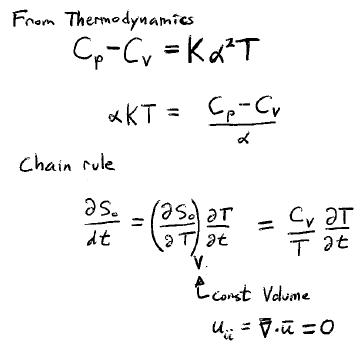 From Thermodynamics
Cₚ-Cᵥ = Kα²T
αKT = (Cₚ-Cᵥ)/α
Chain rule
∂S₀/dt = (∂S₀/∂T)ᵥ ∂T/∂t = Cᵥ/T ∂T/∂t
Const Volume
uᵢᵢ = ∇̄·ū = 0